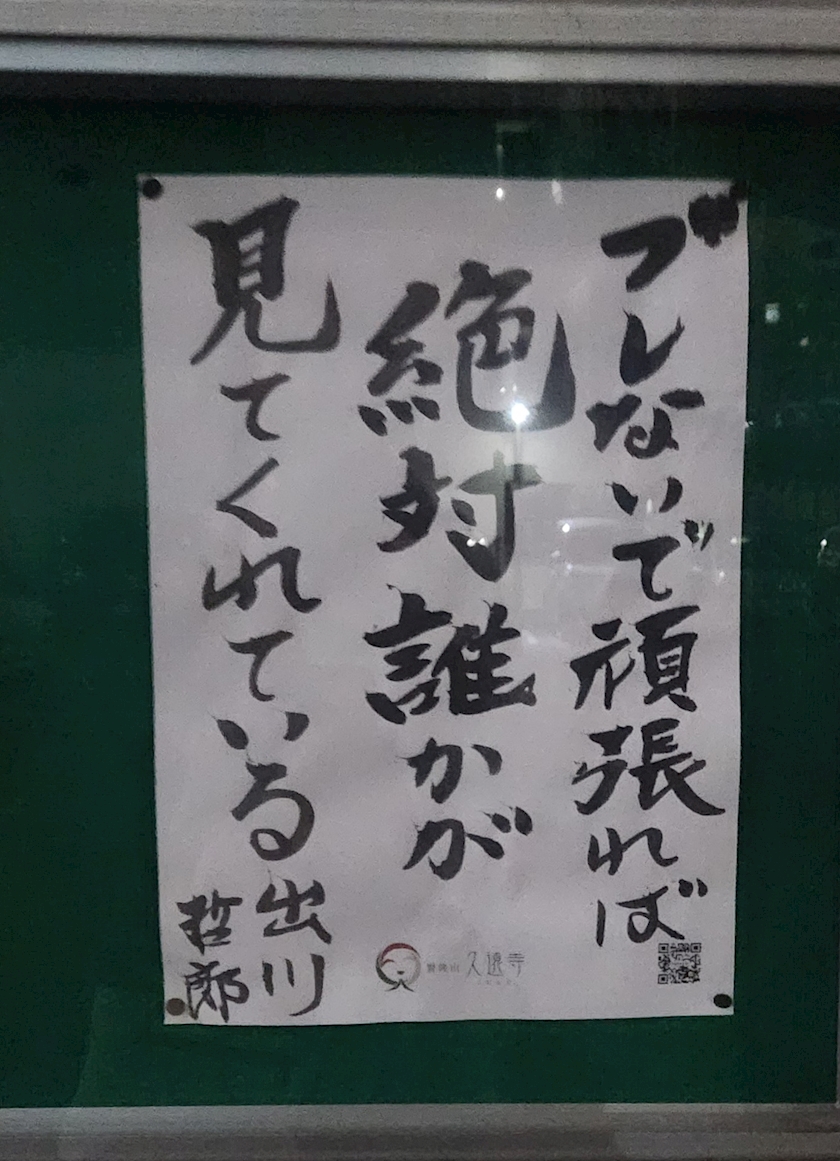 ブレないで頑張れば
絶対誰かが
見てくれている
出川
哲郎
久遠寺